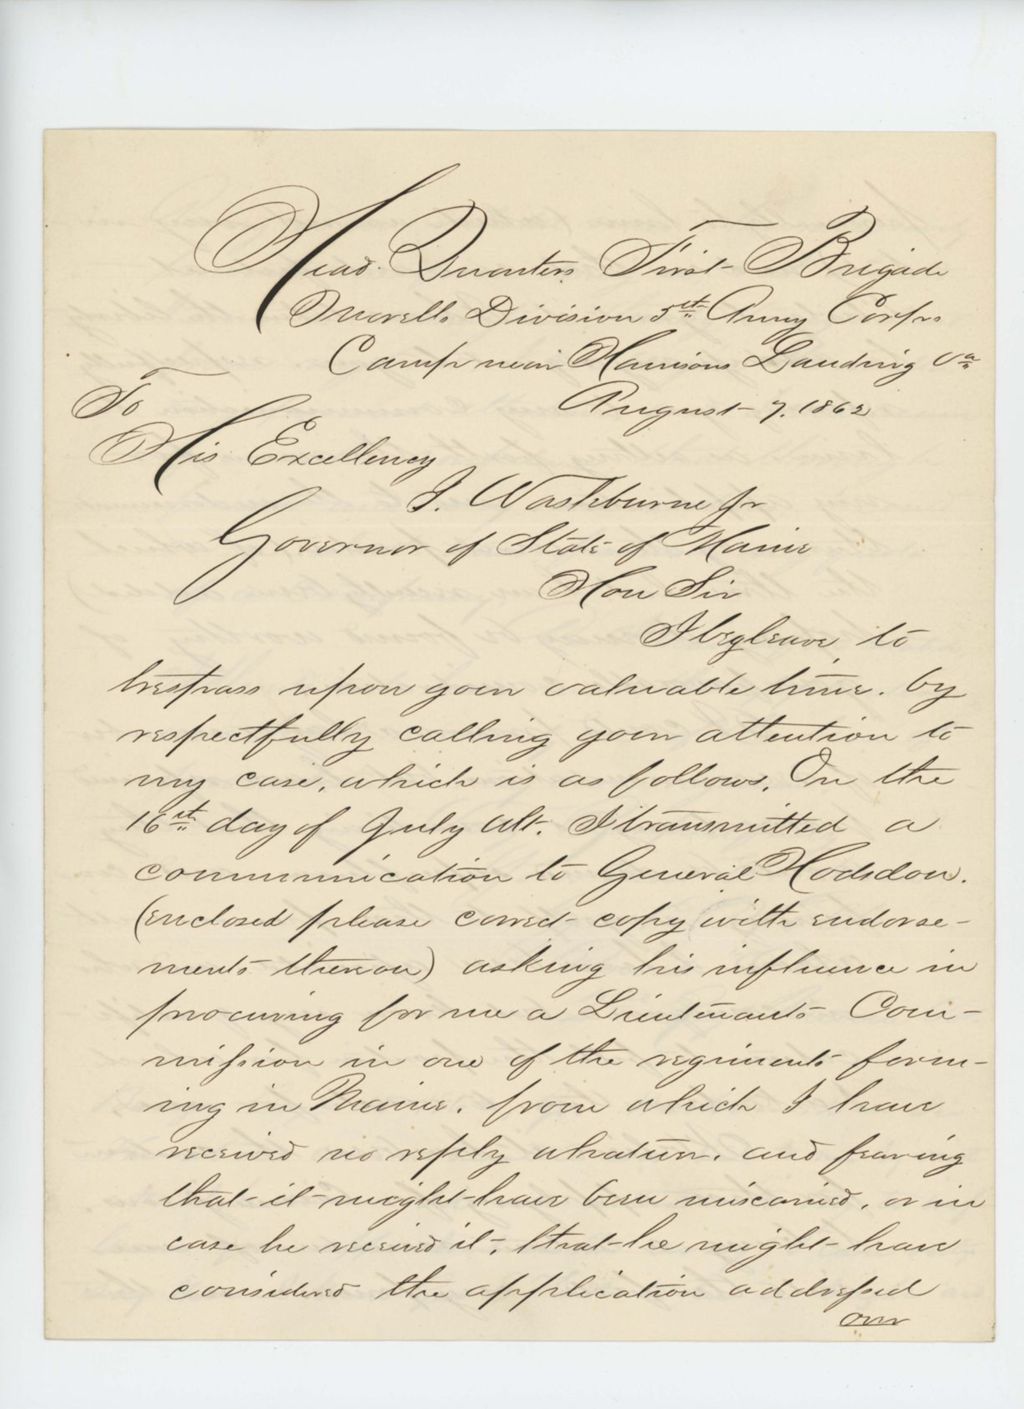 Head Quarters First Brigade
Morells Division 5th Army Corps
Camp near Harrisons Landing Va
August 7. 1862
To
His Excellency
I. Washburne Jr
Governor of State of Maine
Hon Sir
I beg leave to
trespass upon your valuable time. by
respectfully calling your attention to
my case, which is as follows. On the
16th day of July ult. I transmitted a
communication to General Hodsdon.
(enclosed please correct copy with endorse-
ments thereon) asking his influence in
procuring for me a Lieutenants Com-
mission in one of the regiments form-
ing in Maine. from which I have
received no reply whatever. and fearing
that it might have been miscarried, or in
case he received it, that he might have
considered the application addressed
over